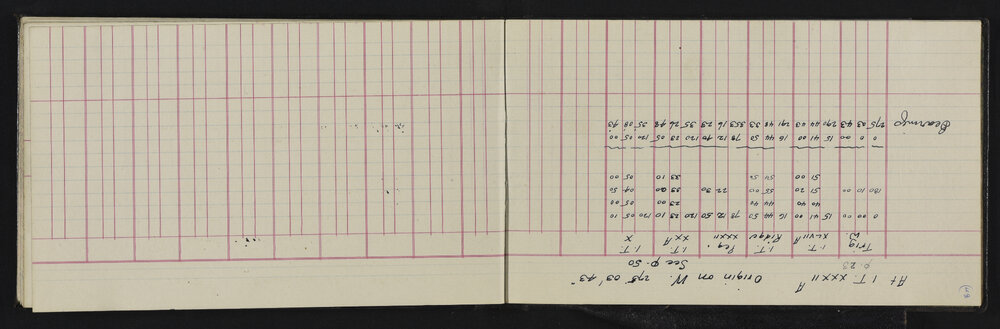 At I.T. XXXII A Origin on W. 275° 03' 43"
p. 23 See p. 50
Trig I.T. I.T. Peg I.T. I.T.
W. XLVII A Ridge XXXII XX A X
0 00 00 15 41 00 16 44 50 78 12 50 120 23 10 120 05 10
40 40 44 40 23 00 05 00
180 10 00 51 20 55 00 22 30 33 00 04 50
51 00 54 50 33 10 05 00
0 00 15 41 00 16 44 50 78 12 40 120 23 05 120 05 00
Bearings 275 03 43 290 44 43 291 48 33 353 16 23 35 26 48 35 08 43